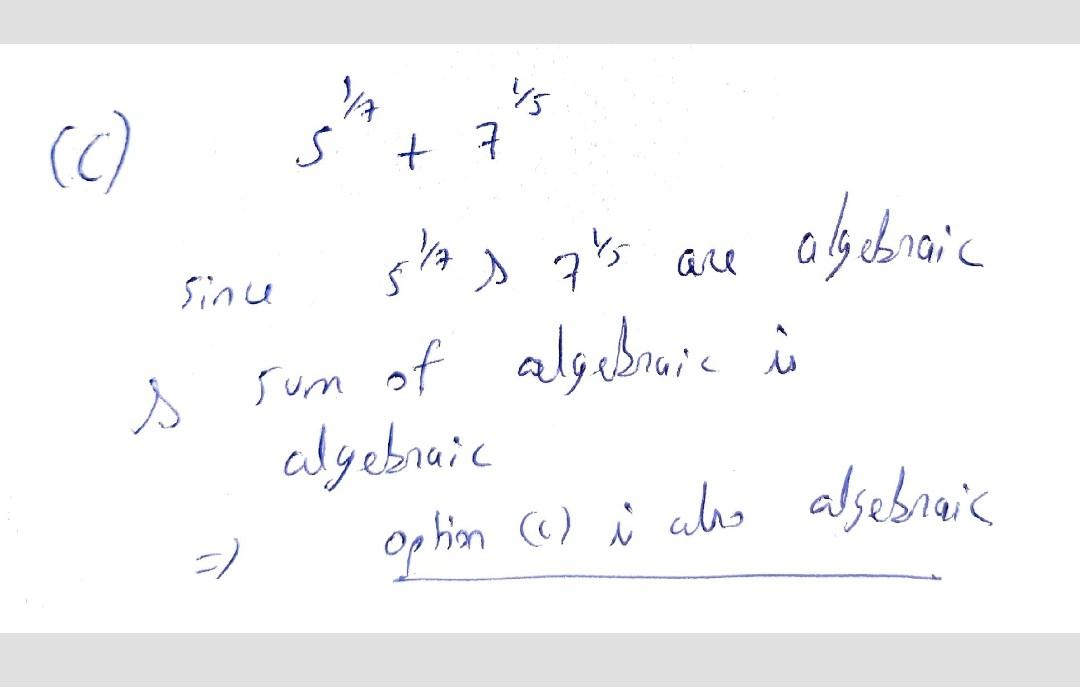 (C) 5^1/7 + 7^1/5
since 5^1/7 & 7^1/5 are algebraic
& sum of algebraic is
algebraic
=> option (c) is also algebraic